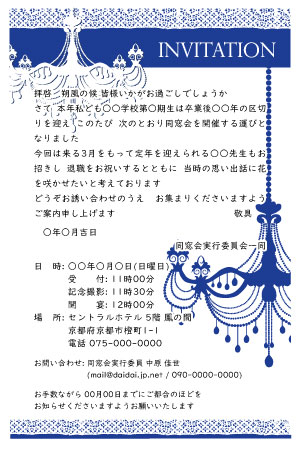 INVITATION
拝啓　朔風の候 皆様いかがお過ごしでしょうか
さて 本年私ども〇〇学校第〇期生は卒業後〇〇年の区切
りを迎え このたび 次のとおり同窓会を開催する運びと
なりました
今回は来る3月をもって定年を迎えられる〇〇先生もお
招きし 退職をお祝いするとともに 当時の思い出話に花
を咲かせたいと考えております
どうぞお誘い合わせのうえ　お集まりくださいますよう
ご案内申し上げます　　　　　　　　　　　敬具
〇年〇月吉日
同窓会実行委員会一同
日　時: 〇〇年〇月〇日(日曜日)
受　　付: 11時00分
記念撮影: 11時30分
開　　宴: 12時00分
場　所: セントラルホテル 5階 鳳の間
京都府京都市橙町1-1
電話 075-000-0000
お問い合わせ: 同窓会実行委員 中原 佳世
(mail@daidai.jp.net / 090-0000-0000)
お手数ながら 00月00日までにご都合のほどを
お知らせくださいますようお願いいたします